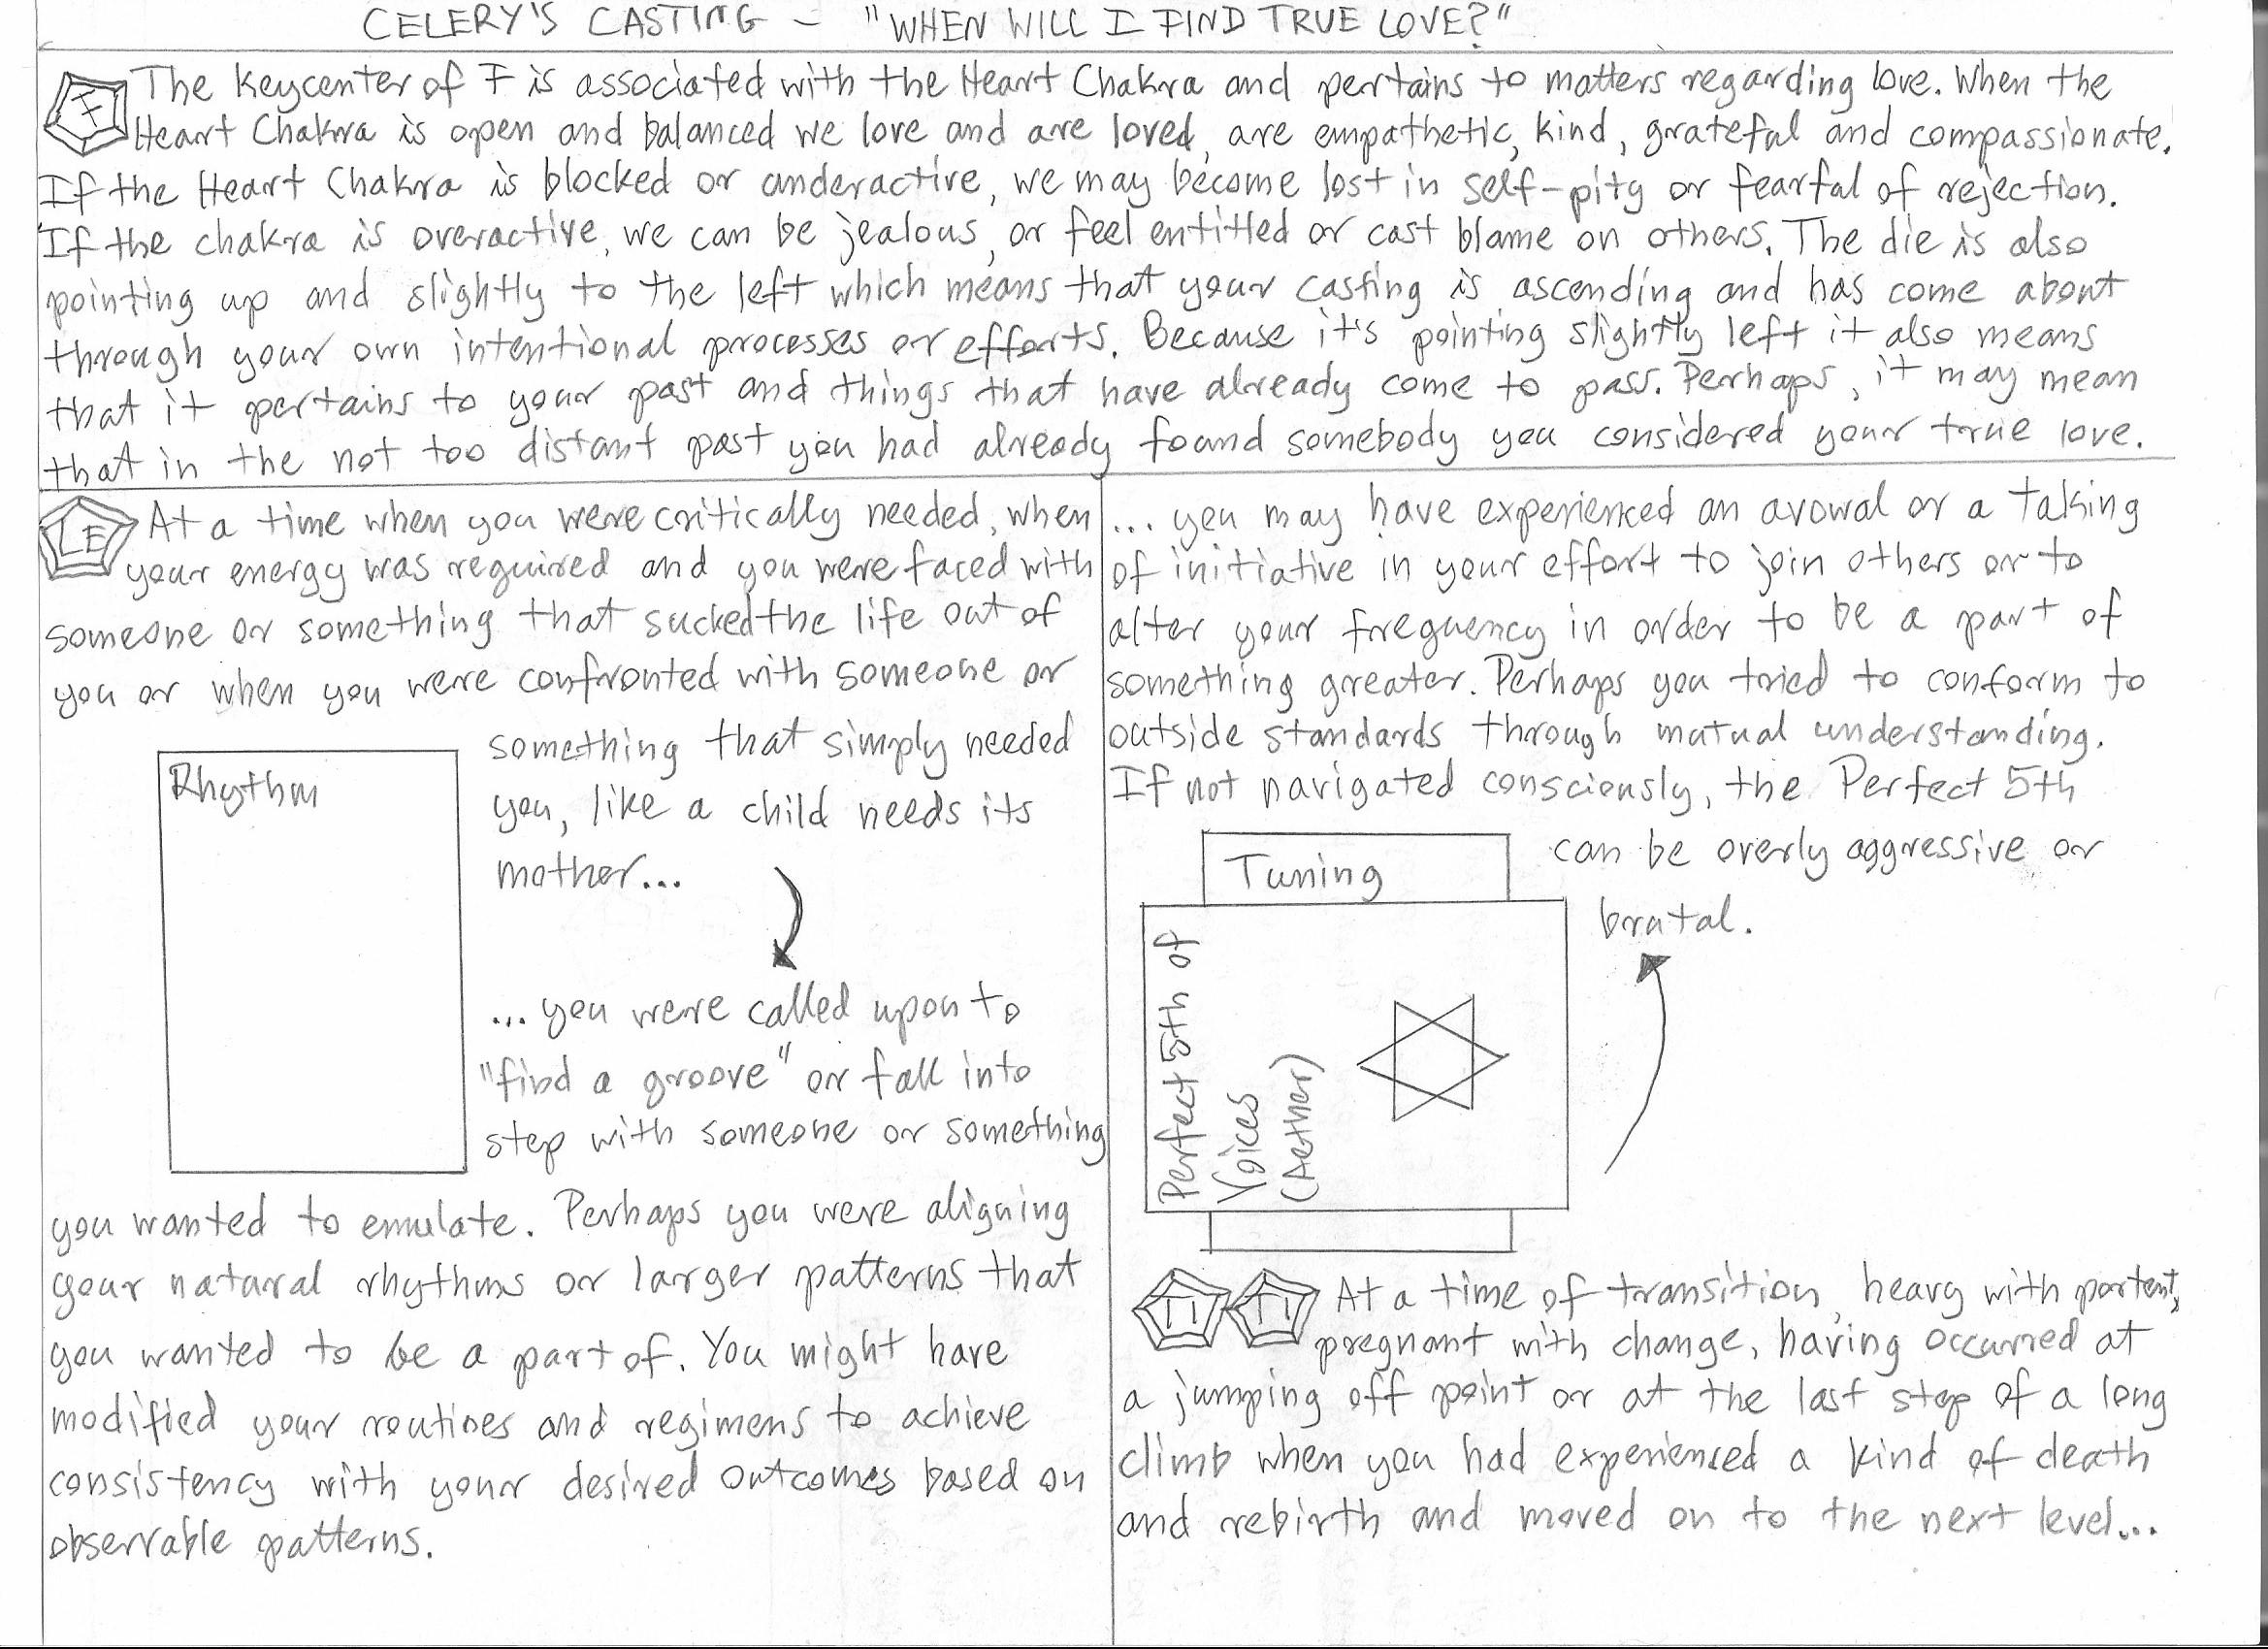 CELERY'S CASTING - "WHEN WILL I FIND TRUE LOVE?"
F The Keycenter of F is associated with the Heart Chakra and pertains to matters regarding love. When the
Heart Chakra is open and balanced we love and are loved, are empathetic, kind, grateful and compassionate.
If the Heart Chakra is blocked or underactive, we may become lost in self-pity or fearful of rejection.
If the chakra is overactive, we can be jealous, or feel entitled or cast blame on others. The die is also
pointing up and slightly to the left which means that your casting is ascending and has come about
through your own intentional processes or efforts. Because it's pointing slightly left it also means
that it pertains to your past and things that have already come to pass. Perhaps, it may mean
that in the not too distant past you had already found somebody you considered your true love.
LE At a time when you were critically needed, when
your energy was required and you were faced with
someone or something that sucked the life out of
you or when you were confronted with someone or
something that simply needed
you, like a child needs its
mother...
Rhythm
... you were called upon to
"find a groove" or fall into
step with someone or something
you wanted to emulate. Perhaps you were aligning
your natural rhythms or larger patterns that
you wanted to be a part of. You might have
modified your routines and regimens to achieve
consistency with your desired outcomes based on
observable patterns.
... you may have experienced an avowal or a taking
of initiative in your effort to join others or to
alter your frequency in order to be a part of
something greater. Perhaps you tried to conform to
outside standards through mutual understanding.
If not navigated consciously, the Perfect 5th
can be overly aggressive or
brutal.
Tuning
Perfect 5th of
Voices
(Aether)
TI TI At a time of transition, heavy with portent,
pregnant with change, having occurred at
a jumping off point or at the last step of a long
climb when you had experienced a kind of death
and rebirth and moved on to the next level...